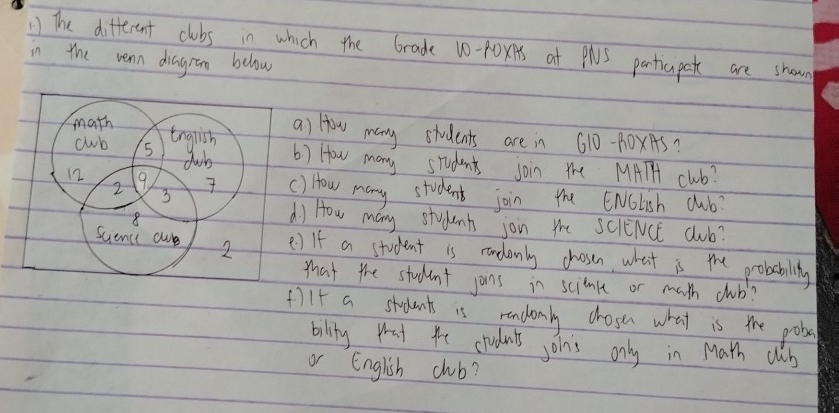 1.) The different clubs in which the Grade 10-ROXAS at PNS participate are shown
in the venn diagram below
math
club
English
club
5
12
2
9
3
7
8
Science club
2
a) How many students are in G10-ROXAS?
b) How many students join the MATH club?
c.) How many students join the ENGLish club?
d.) How many students join the SCIENCE club?
e.) If a student is randomly chosen, what is the probability
that the student joins in science or math club?
f.) If a students is randomly chosen what is the proba
bility that the students join's only in Math club
or English club?